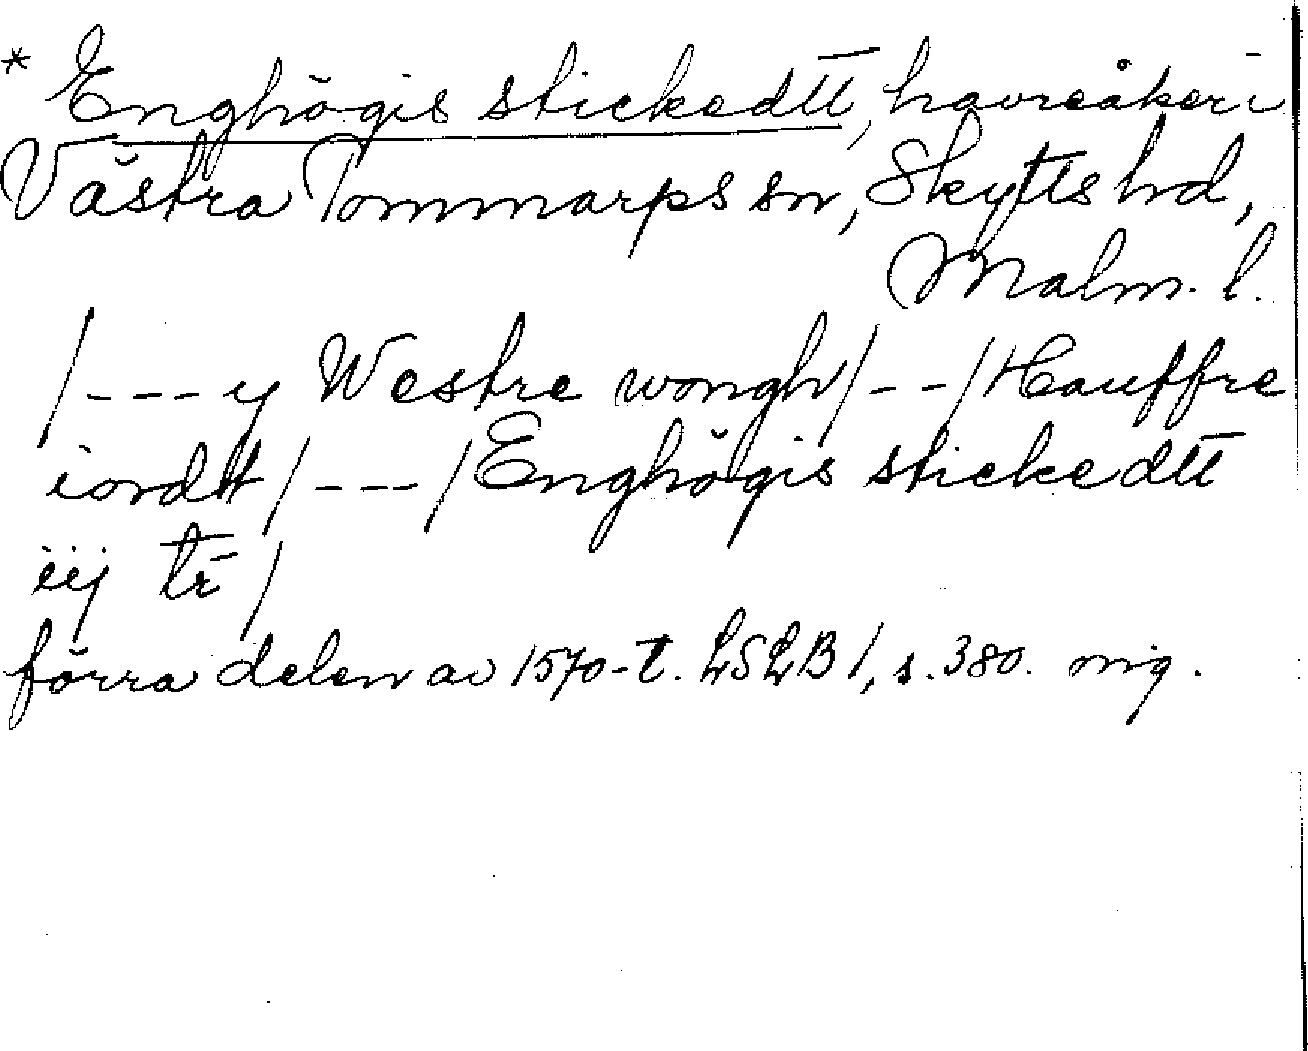 * Enghögis stickedtt, havreåker i
Västra Tommarps sn, Skytts hd,
Malm. l.
/---y Westre wongh/--/Hauffre
iordtt/---/Enghögis stickedtt
iij tr̄/
förra delen av 1570-t. LSLB 1, s. 380. orig.